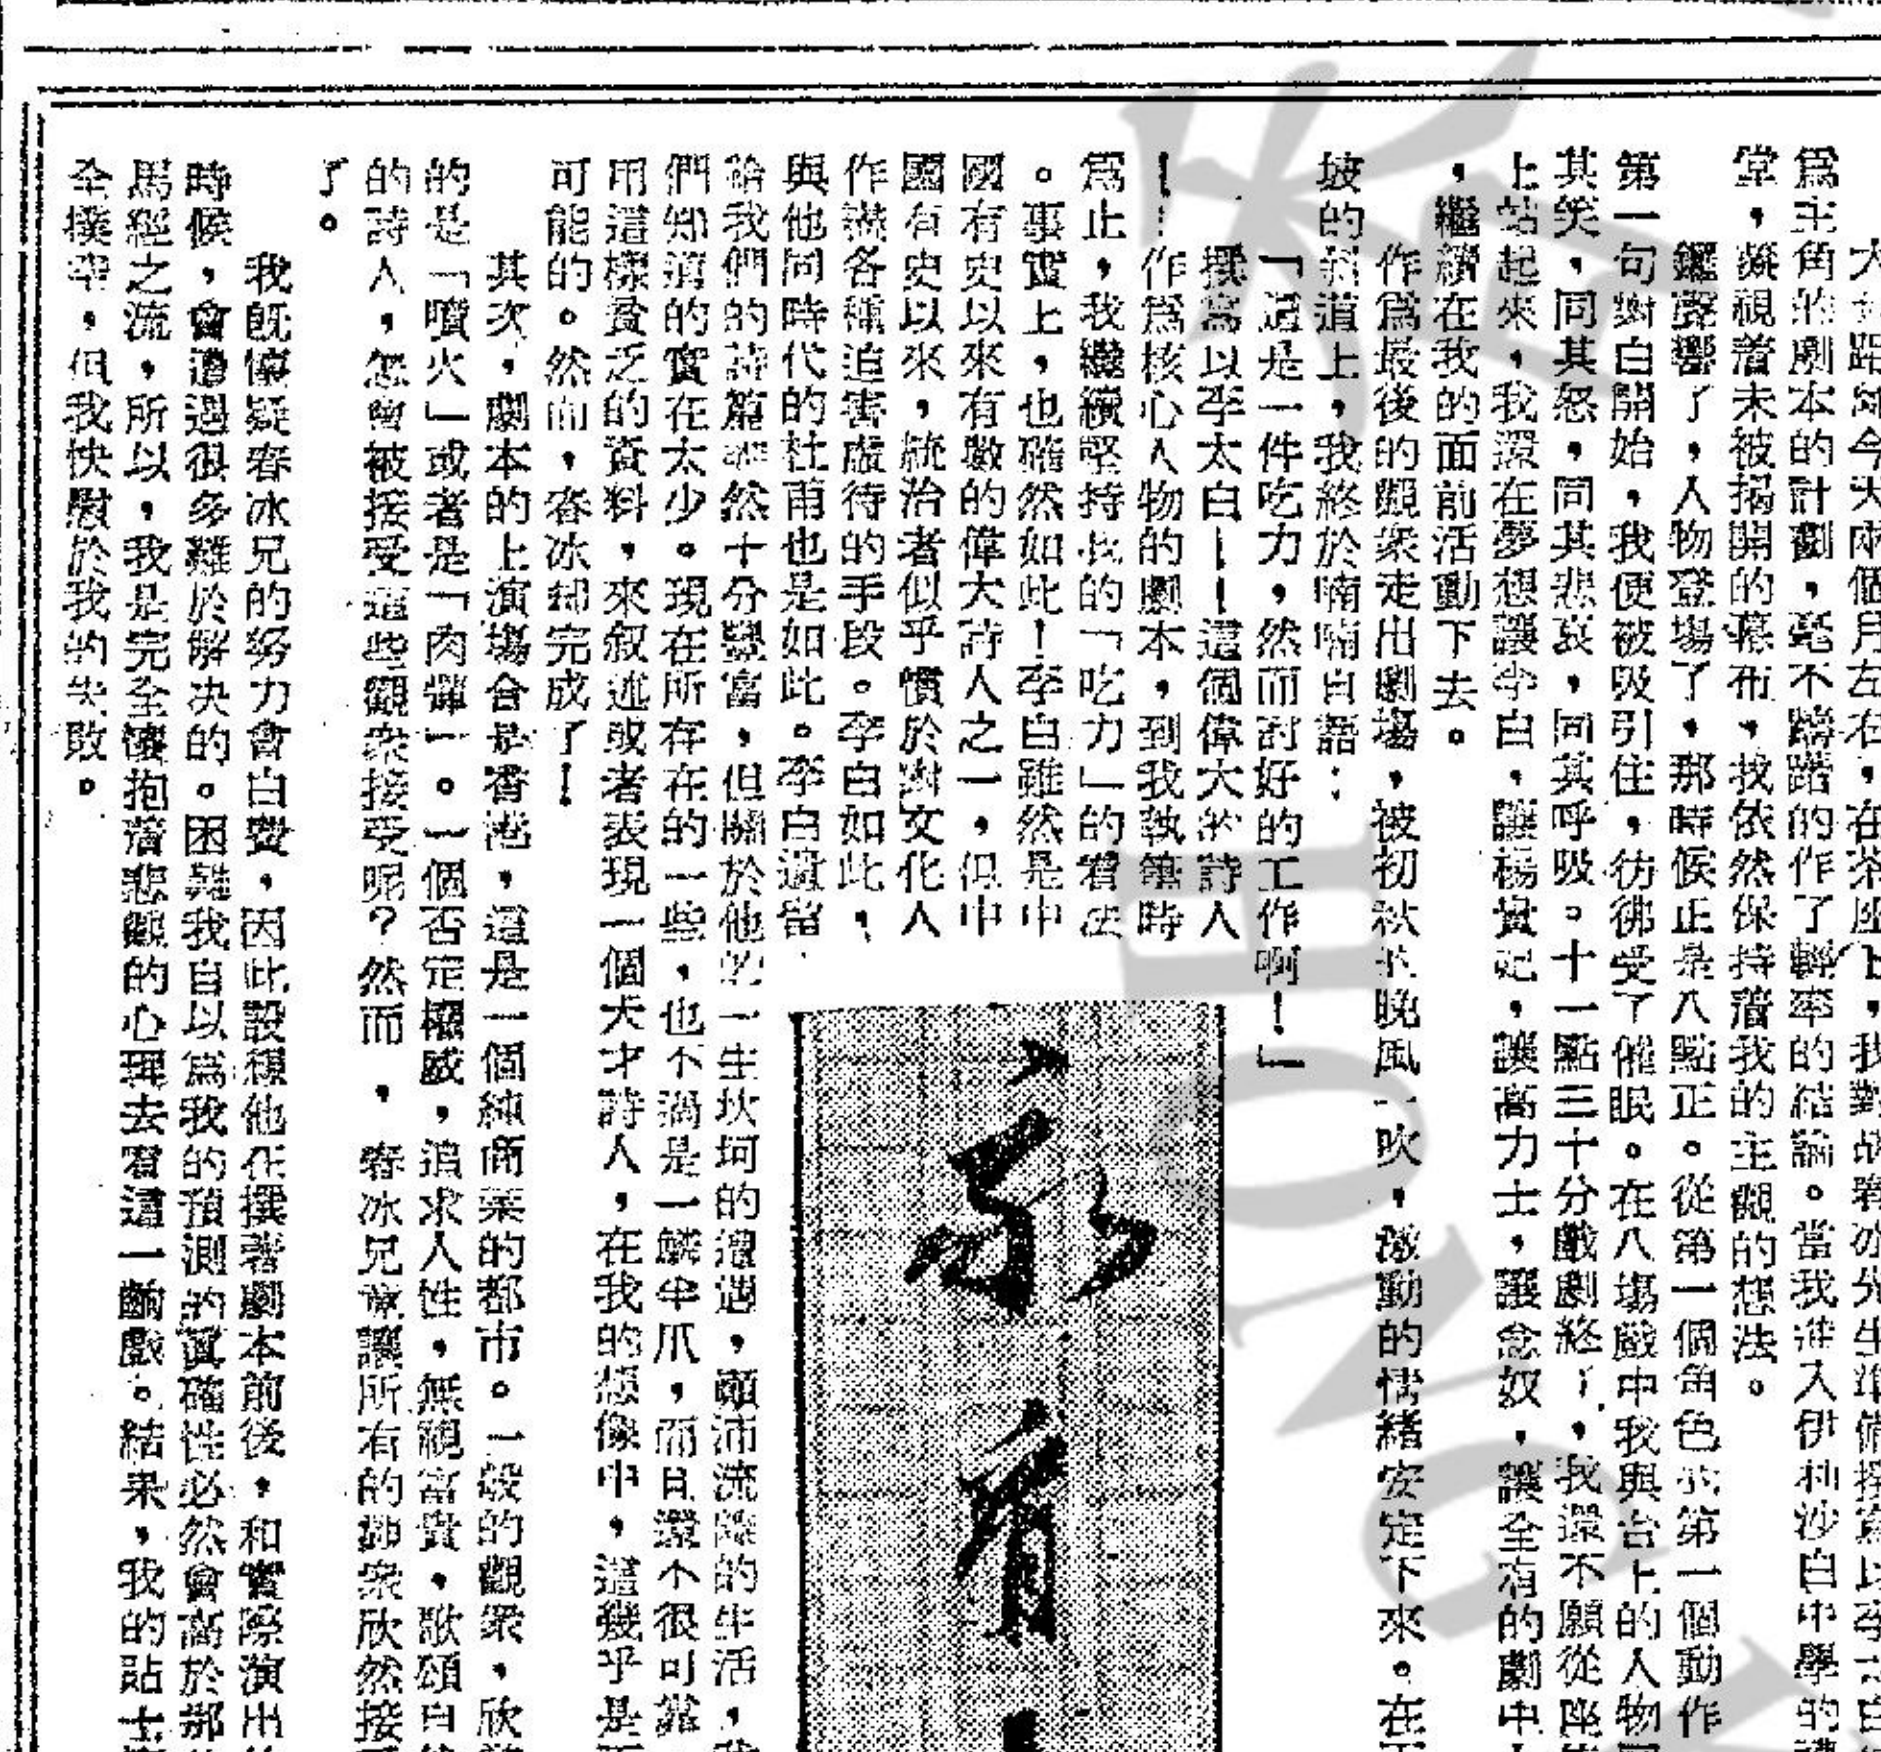 大 距離今天兩個月左右，在茶座上，我對胡春冰先生準備撰寫以李太白
爲主角的劇本的計劃，毫不躊躇的作了輕率的結論。當我進入伊利沙白中學的
堂，凝視着未被揭開的幕布，我依然保持着我的主觀的想法。
鑼聲響了，人物登場了，那時候正是八點正。從第一個角色的第一個動作
第一句對白開始，我便被吸引住，彷彿受了催眠。在八場戲中我與台上的人物
其笑，同其怒，同其悲哀，同其呼吸。十一點三十分戲劇終了，我還不願從座
上站起來，我深在夢想讓李白，讓楊貴妃，讓高力士，讓念奴，讓全有的劇中
，繼續在我的面前活動下去。
作爲最後的觀衆走出劇場，被初秋的晚風一吹，激動的情緒安定下來。在
坡的斜道上，我終於喃喃自語：
「這是一件吃力，然而討好的工作啊！」
撰寫以李太白——這個偉大的詩人
——作爲核心人物的劇本，到我執筆時
爲止，我繼續堅持我的「吃力」的看法
。事實上，也確然如此！李白雖然是中
國有史以來有數的偉大詩人之一，但中
國有史以來，統治者似乎慣於對文化人
作出各種迫害虐待的手段。李白如此，
與他同時代的杜甫也是如此。李白遺留
給我們的詩篇雖然十分豐富，但關於他的一生坎坷的遭遇，顛沛流離的生活，
們知道的實在太少。現在所存在的一些，也不過是一鱗半爪，而且還不很可靠
用這樣貧乏的資料，來叙述或者表現一個天才詩人，在我的想像中，這幾乎是
可能的。然而，春冰却完成了！
其次，劇本的上演場合是香港，這是一個純商業的都市。一般的觀衆，欣
的是「噴火」或者是「肉彈」。一個否定權威，追求人性，無視富貴，歌頌自
的詩人，怎會被接受這些觀衆接受呢？然而，春冰兄竟讓所有的觀衆欣然接
了。
我既懷疑春冰兄的努力會白費，因此設想他在撰著劇本前後，和實際演出
時候，會遭遇很多難於解决的。困難我自以爲我的預測的眞確性必然會高於那
馬經之流，所以，我是完全懷抱着悲觀的心理去看這一齣戲。結果，我的貼士
全撲空，但我快慰於我的失敗。
HONG